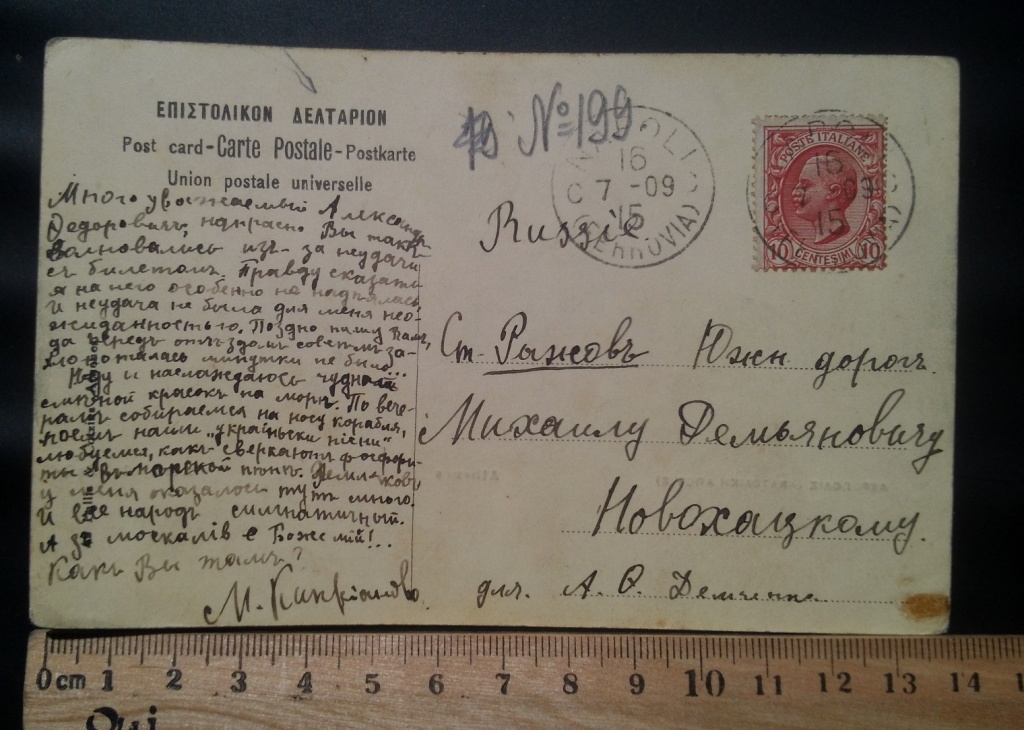 ΕΠΙΣΤΟΛΙΚΟΝ ΔΕΛΤΑΡΙΟΝ
Post card-Carte Postale-Postkarte
Union postale universelle
Много уважаемый Александр
Федоровичъ, напрасно Вы такъ
волновались изъ-за неудачи
съ билетомъ. Правду сказать
я на него особенно не надѣялась,
и неудача не была для меня нео-
жиданностью. Поздно пишу Вамъ,
да передъ отъѣздомъ совсѣмъ за-
хлопоталась минутки не было...
Ѣду и наслаждаюсь чудной
смѣной красокъ на морѣ. По вече-
рамъ собираемся на носу корабля,
поемъ наши „україньски пісни"
любуемся, какъ сверкаютъ фосфори-
ты въ морской пѣнѣ. Земляковъ
у меня оказалось тутъ много.
И все народъ симпатичный.
А зъ москалів е Боже мій!...
Какъ Вы тамъ?
М. Кипріанова
№ 199
NAPOLI
16
7 -09
15
(FERROVIA)
Russie.
Ст. Рыжовъ Южн дорог.
Михаилу Демьяновичу
Новохацкому.
для А. Ѳ. Демченка
POSTE ITALIANE
10 CENTESIMI 10
16
09
15
0cm 1 2 3 4 5 6 7 8 9 10 11 12 13 14 1
Oui